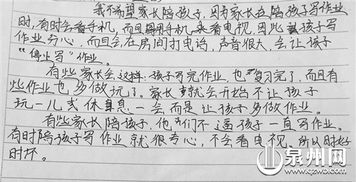 我不希望家长陪孩子，因为家长在陪孩子写作业
时，有时会看手机，而且用手机来看电视，因此让孩子写
作业分心，而且会在房间打电话，声音很大，会让孩子
"停止写"作业。
有些家长会这样：孩子写完作业，也"复习完了，而且有
些作业也多做玩了，家长就会开始不让孩子
玩一儿或休息息一会，而是让孩子多做作业。
有些家长陪孩子，他"们不逼孩子一直写作业。
有时陪孩子写作业就很专心，不会看电视。所以时好
时坏。
泉州网